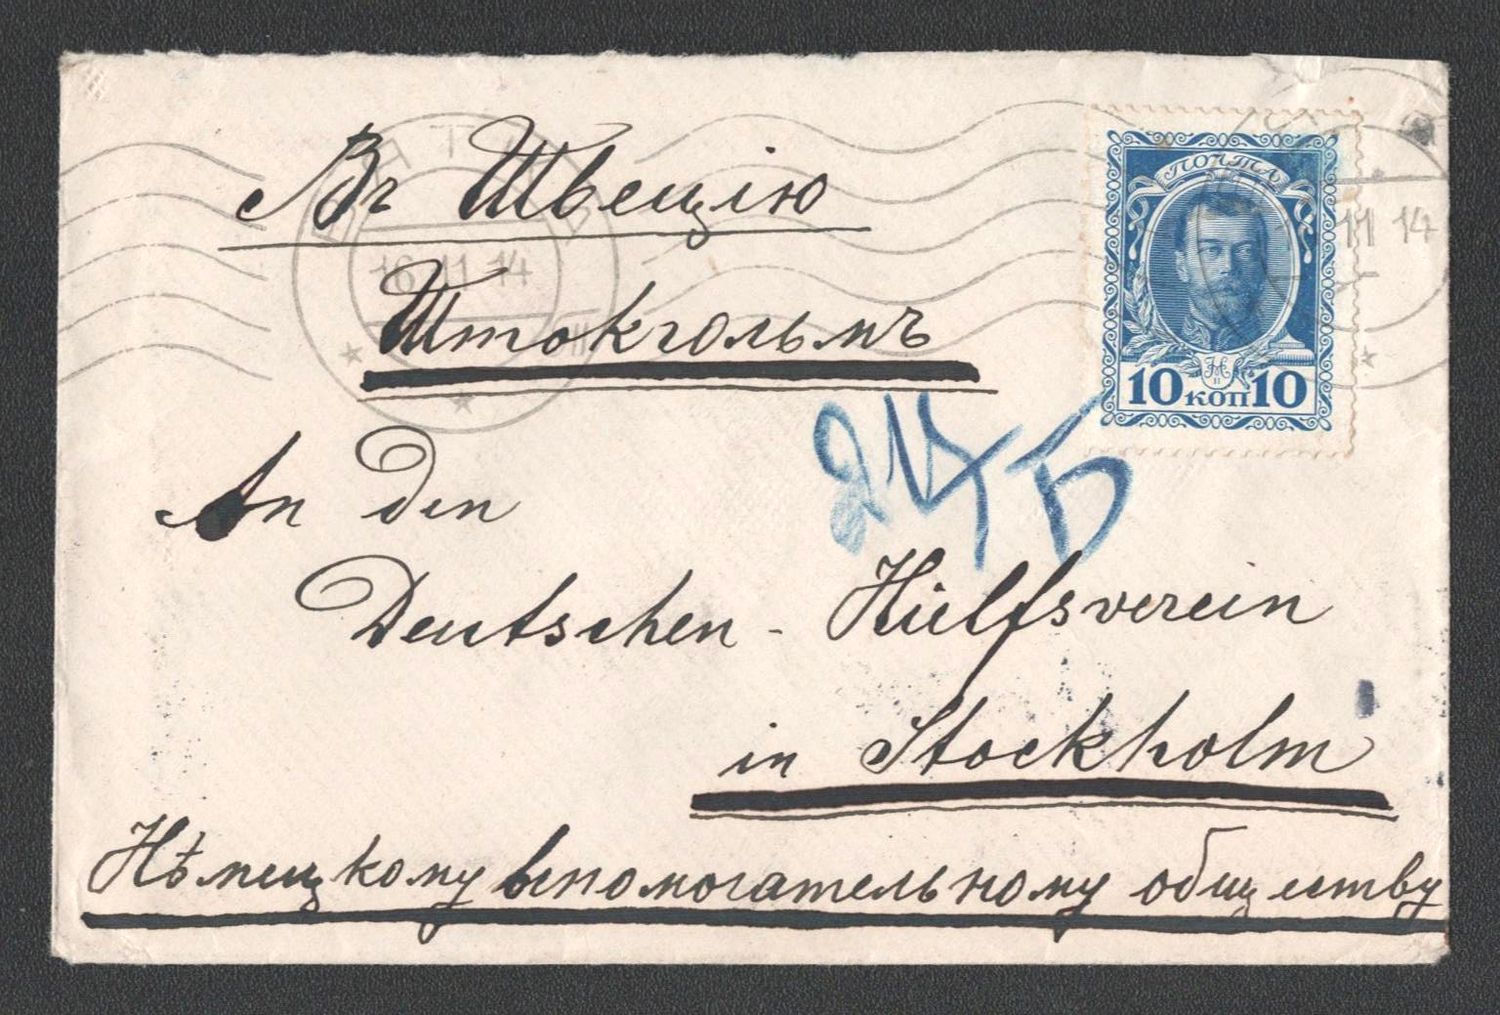 Въ Швецію
Штокгольмъ
16 11 14
11 14
ПОЧТА
10 КОП 10
An den
Deutschen - Hülfsverein
in Stockholm
Нѣмецкому вспомогательному обществу